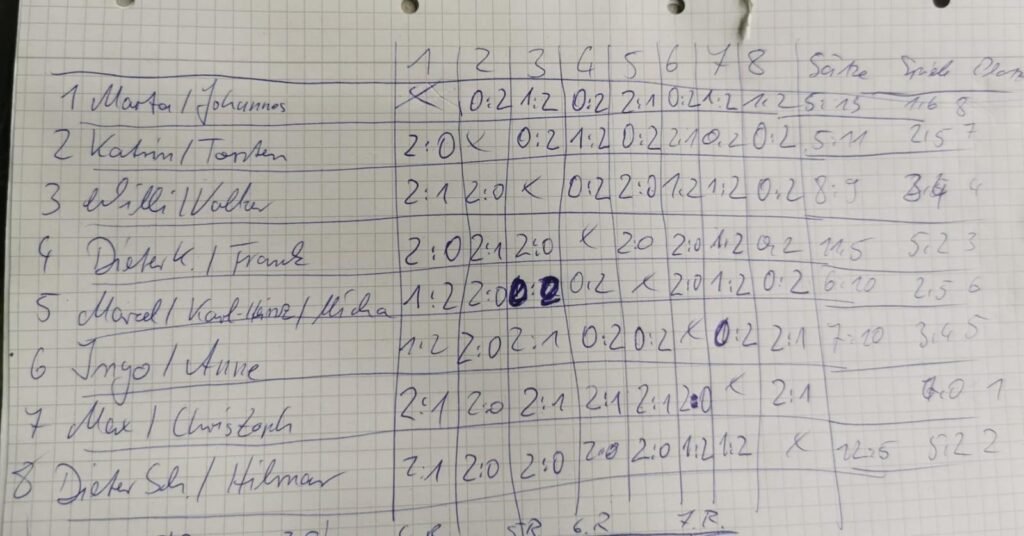 1 2 3 4 5 6 7 8 Sätze Spiele Platz
1 Marta/Johannes X 0:2 1:2 0:2 2:1 0:2 1:2 1:2 5:13 1:6 8
2 Katrin/Torsten 2:0 X 0:2 1:2 0:2 2:1 0:2 0:2 5:11 2:5 7
3 Willi/Volker 2:1 2:0 X 0:2 2:0 1:2 1:2 0:2 8:9 3:4 4
4 Dieter K./Frank 2:0 2:1 2:0 X 2:0 2:0 1:2 0:2 11:5 5:2 3
5 Marcel/Karl-Heinz/Micha 1:2 2:0 0:2 0:2 X 2:0 1:2 0:2 6:10 2:5 6
6 Ingo/Anne 1:2 2:0 2:1 0:2 0:2 X 0:2 2:1 7:10 3:4 5
7 Max/Christoph 2:1 2:0 2:1 2:1 2:1 2:0 X 2:1 7:0 1
8 Dieter Sch./Hilmar 2:1 2:0 2:0 2:0 2:0 1:2 1:2 X 12:5 5:2 2
5R 6.R 7.R.